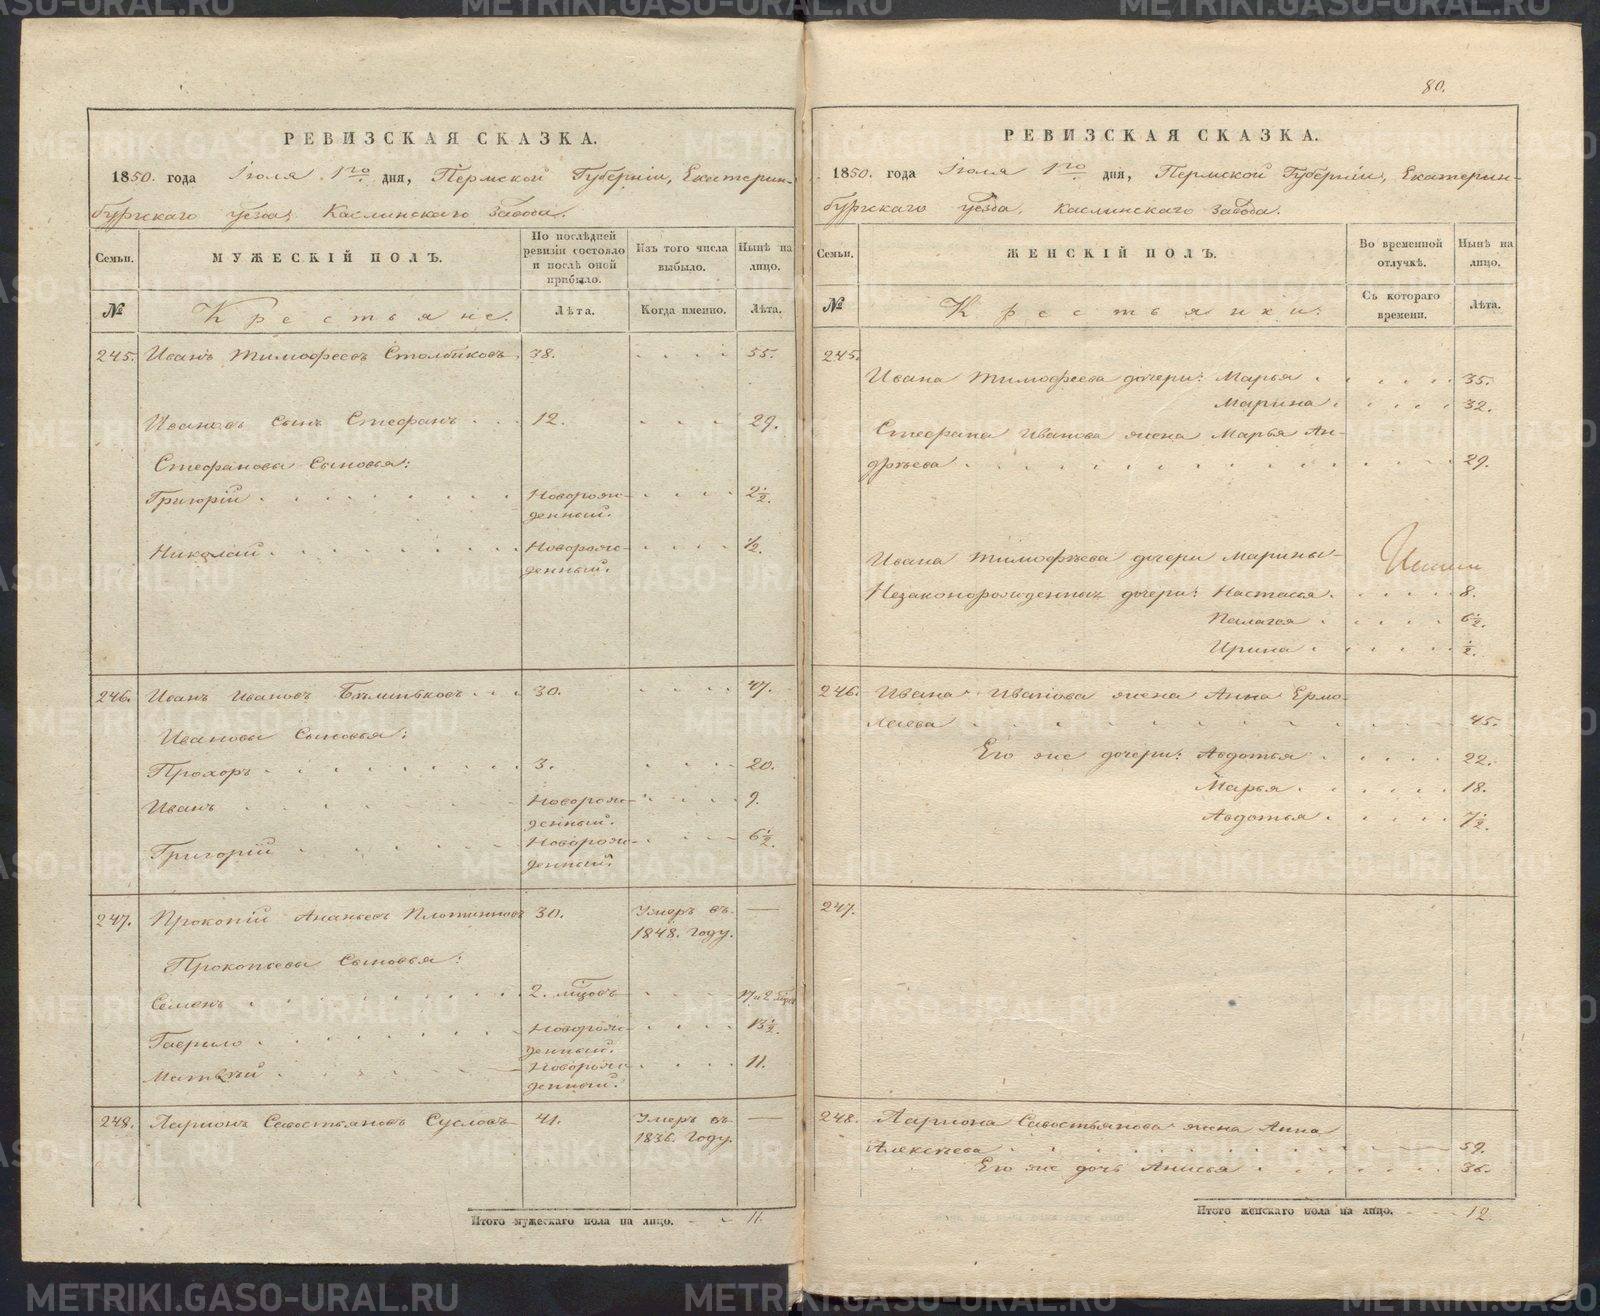 80.
РЕВИЗСКАЯ СКАЗКА.
1850. года Іюля 1го дня, Пермской Губерніи, Екатерин-
бургскаго уезда, Каслинскаго Завода.
Семьи. МУЖЕСКІЙ ПОЛЪ. По послѣдней ревизіи состояло и послѣ оной прибыло. Изъ того числа выбыло. Нынѣ на лицо.
№ Крестьяне. Лѣта. Когда именно. Лѣта.
245. Иванъ Тимофеевъ Столбиковъ 38. 55.
Ивановъ сынъ Стефанъ 12. 29.
Стефановы Сыновья:
Григорій Новорож- 2½.
денный.
Николай Новорож- ½.
денный.
246. Иванъ Ивановъ 30. 47.
Ивановы Сыновья:
Прохоръ 3. 20.
Иванъ Новорож- 9.
денный.
Григорій Новорож- 6½.
денный.
247. Прокопій Ананьевъ Плотниковъ 30. Умеръ въ —
1848. году.
Прокопьевы Сыновья:
Семенъ 2. мцовъ 17 и 2
Гаврило Новорож- 13½.
денный.
Матвѣй Новорож- 11.
денный.
248. Ларионъ Савостьяновъ Сусловъ 41. Умеръ въ —
1836. году.
Итого мужескаго пола на лицо. 11.
РЕВИЗСКАЯ СКАЗКА.
1850. года Іюля 1го дня, Пермской Губерніи, Екатерин-
бургскаго уезда, Каслинскаго Завода.
Семьи. ЖЕНСКІЙ ПОЛЪ. Во временной отлучкѣ. Нынѣ на лицо.
№ Крестьянки. Съ котораго времени. Лѣта.
245.
Ивана Тимофеева дочери: Марья 35.
Марина 32.
Стефана Иванова жена Марья Ан-
дрѣева 29.
Ивана Тимофѣева дочери Марины
Незаконорожденныя дочери: Настасья 8.
Палагея 6½.
Ирина ½.
246. Ивана Иванова жена Анна Ермо-
лаева 45.
Его же дочери: Авдотья 22.
Марья 18.
Авдотья 7½.
247.
248. Лариона Савостьянова жена Анна
Алексѣева 59.
Его же дочь Анисья 36.
Итого женскаго пола на лицо. 12
METRIKI.GASO-URAL.RU